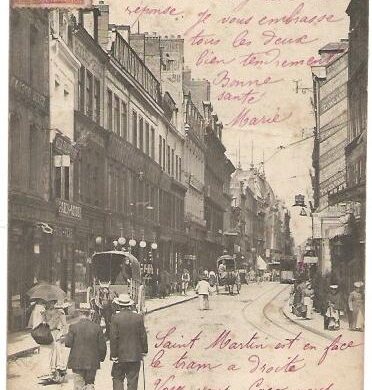 réponse. Je vous embrasse
tous les deux
bien tendrement
Bonne
santé
Marie
Saint Martin est en face
le tram a droite